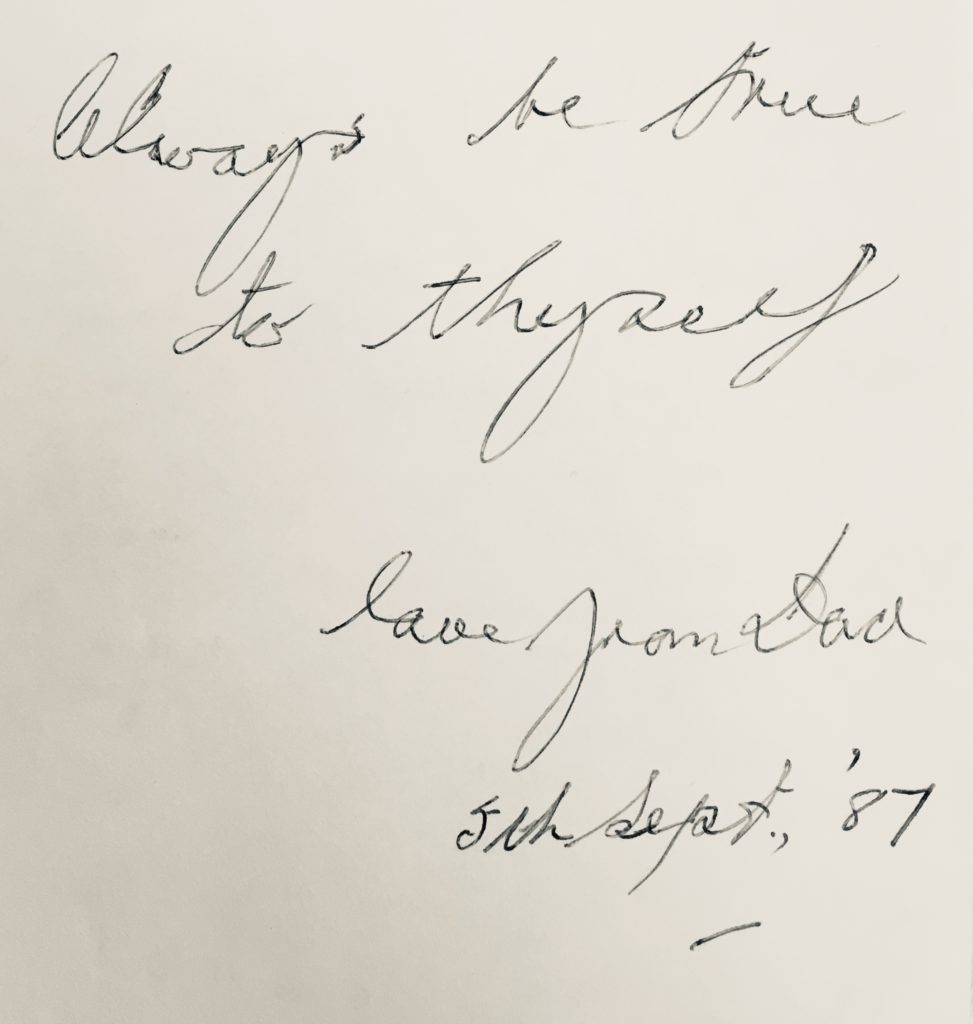 Always be true
to thyself
love from Dad
5th Sept., '87